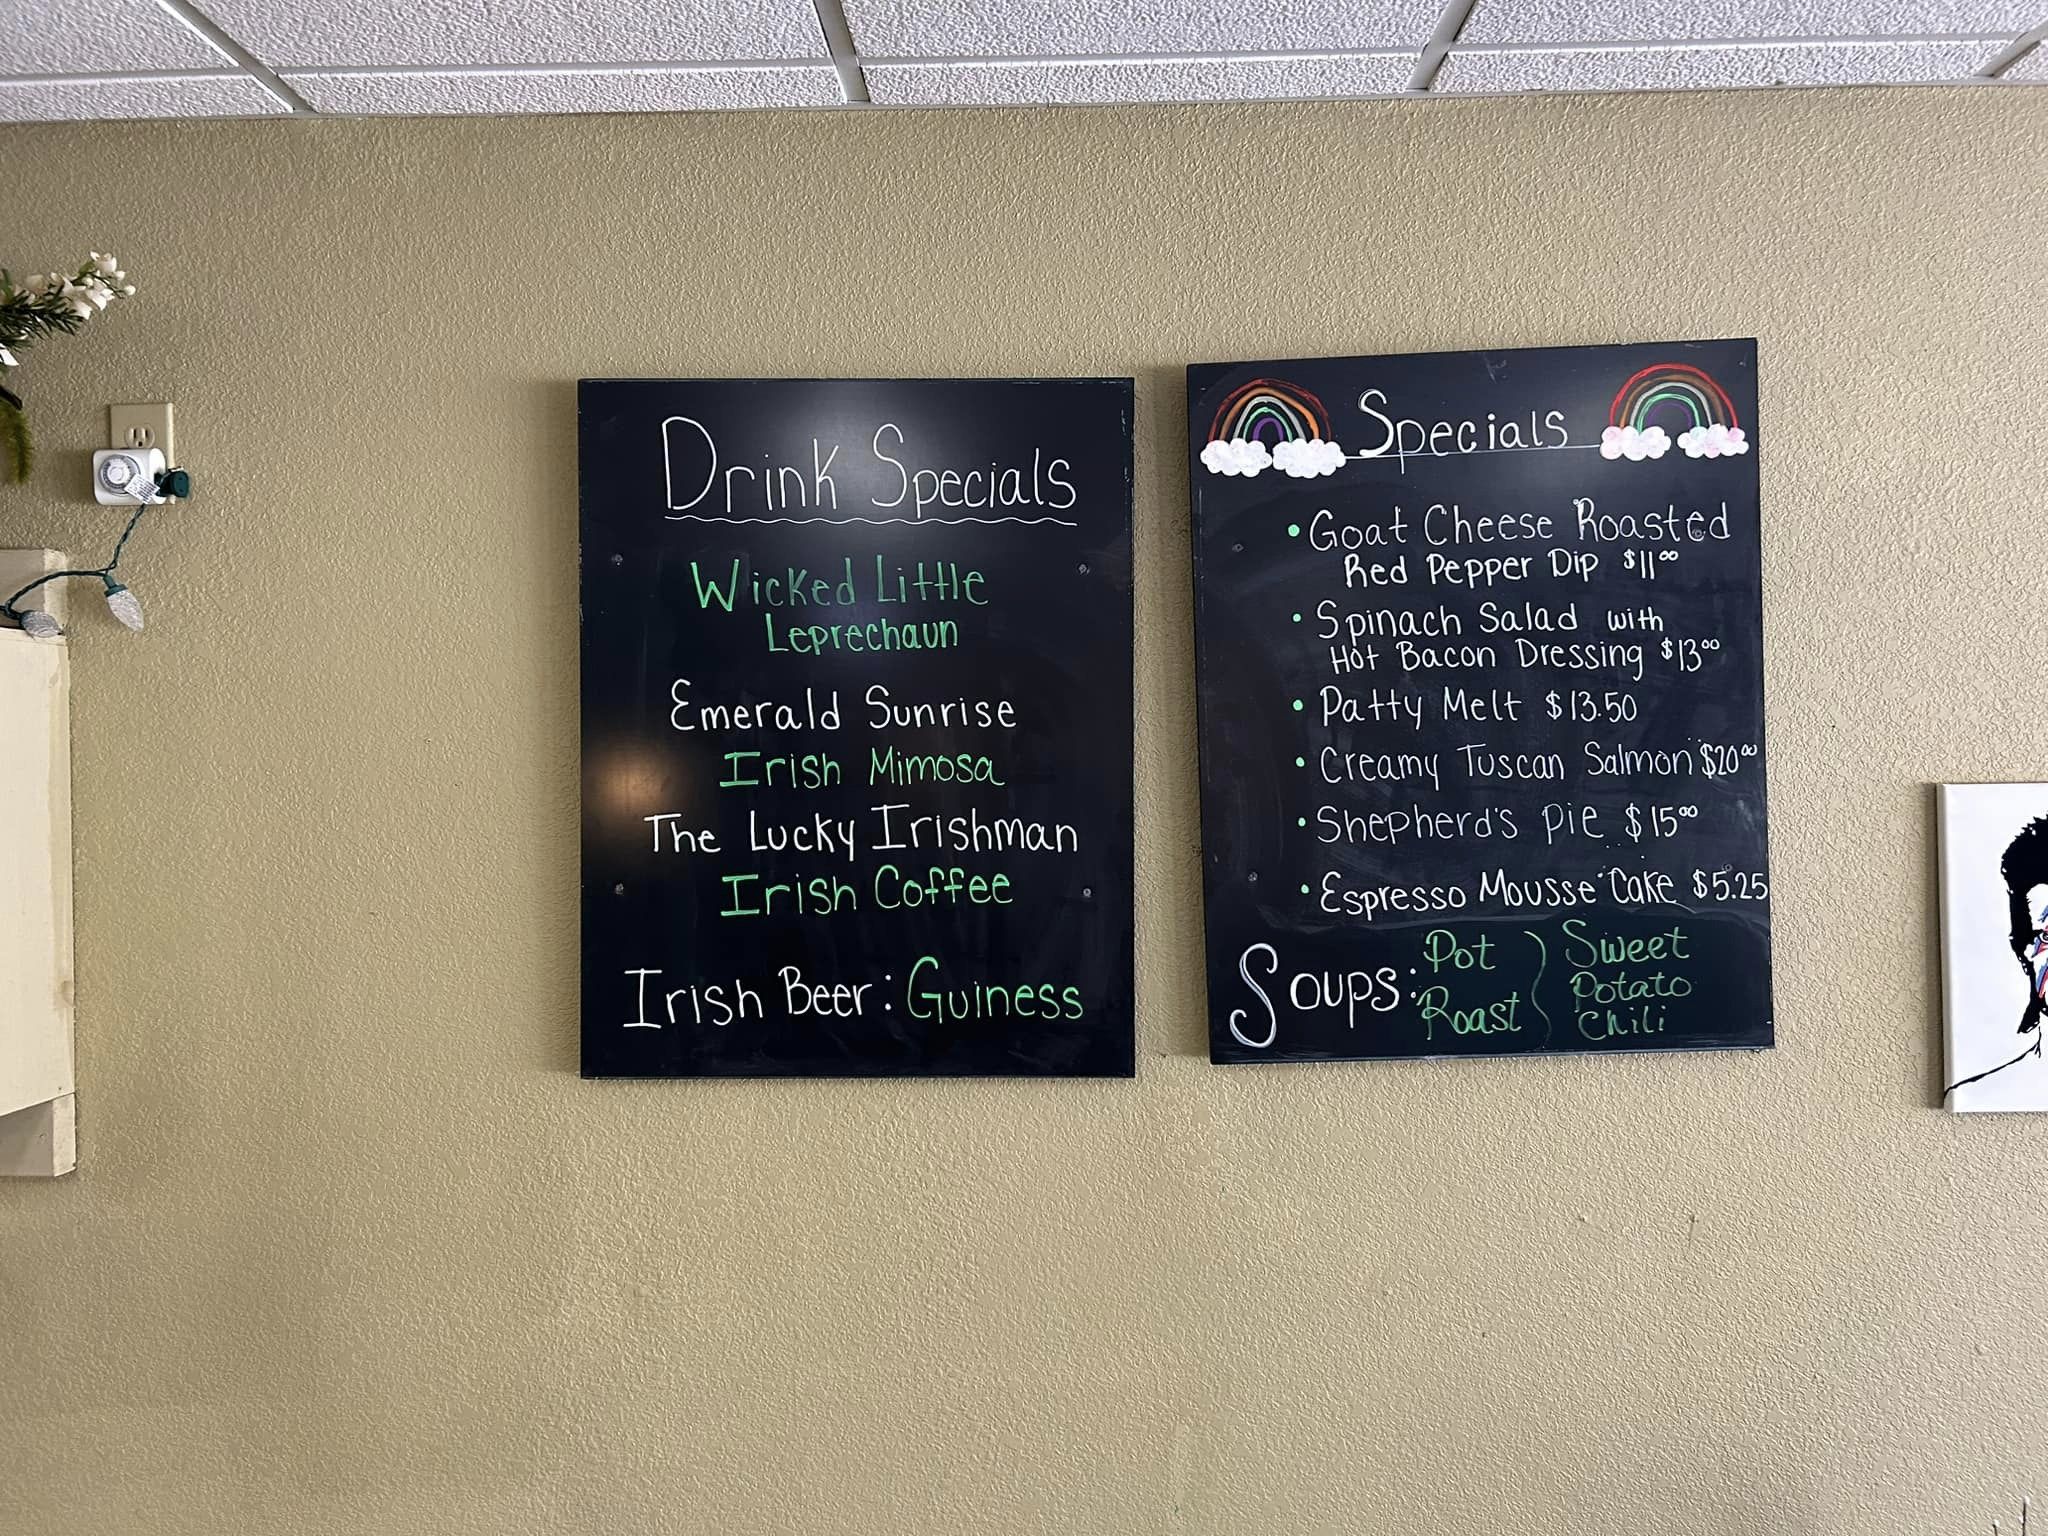 Drink Specials
Wicked Little
Leprechaun
Emerald Sunrise
Irish Mimosa
The Lucky Irishman
Irish Coffee
Irish Beer: Guiness
Specials
• Goat Cheese Roasted
Red Pepper Dip $11⁰⁰
• Spinach Salad with
Hot Bacon Dressing $13⁰⁰
• Patty Melt $13.50
• Creamy Tuscan Salmon $20⁰⁰
• Shepherd's Pie $15⁰⁰
• Espresso Mousse Cake $5.25
Soups:
Pot
Roast
Sweet
Potato
Chili